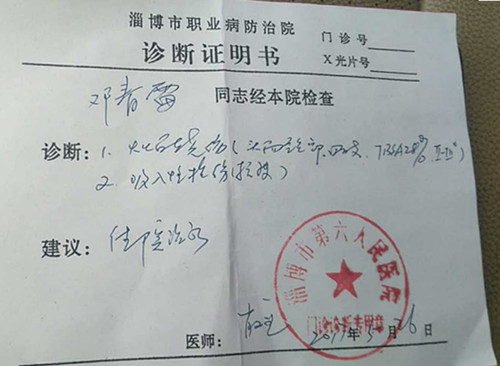 淄博市职业病防治院
门诊号
诊断证明书
X光片号
邓春雷 同志经本院检查
诊断：1. 火焰烧伤（头面颈部、四肢、TBSA28% II-III°）
2. 吸入性损伤（轻度）
建议：住院治疗
淄博市第六人民医院
门诊诊断专用章
医师： 年5月26日